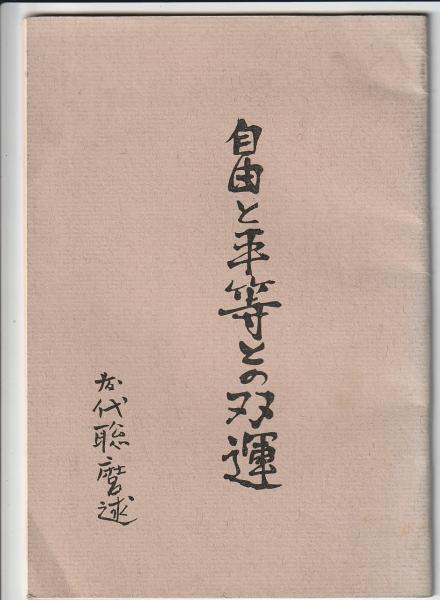 自由と平等との双運
藤代聡麿述